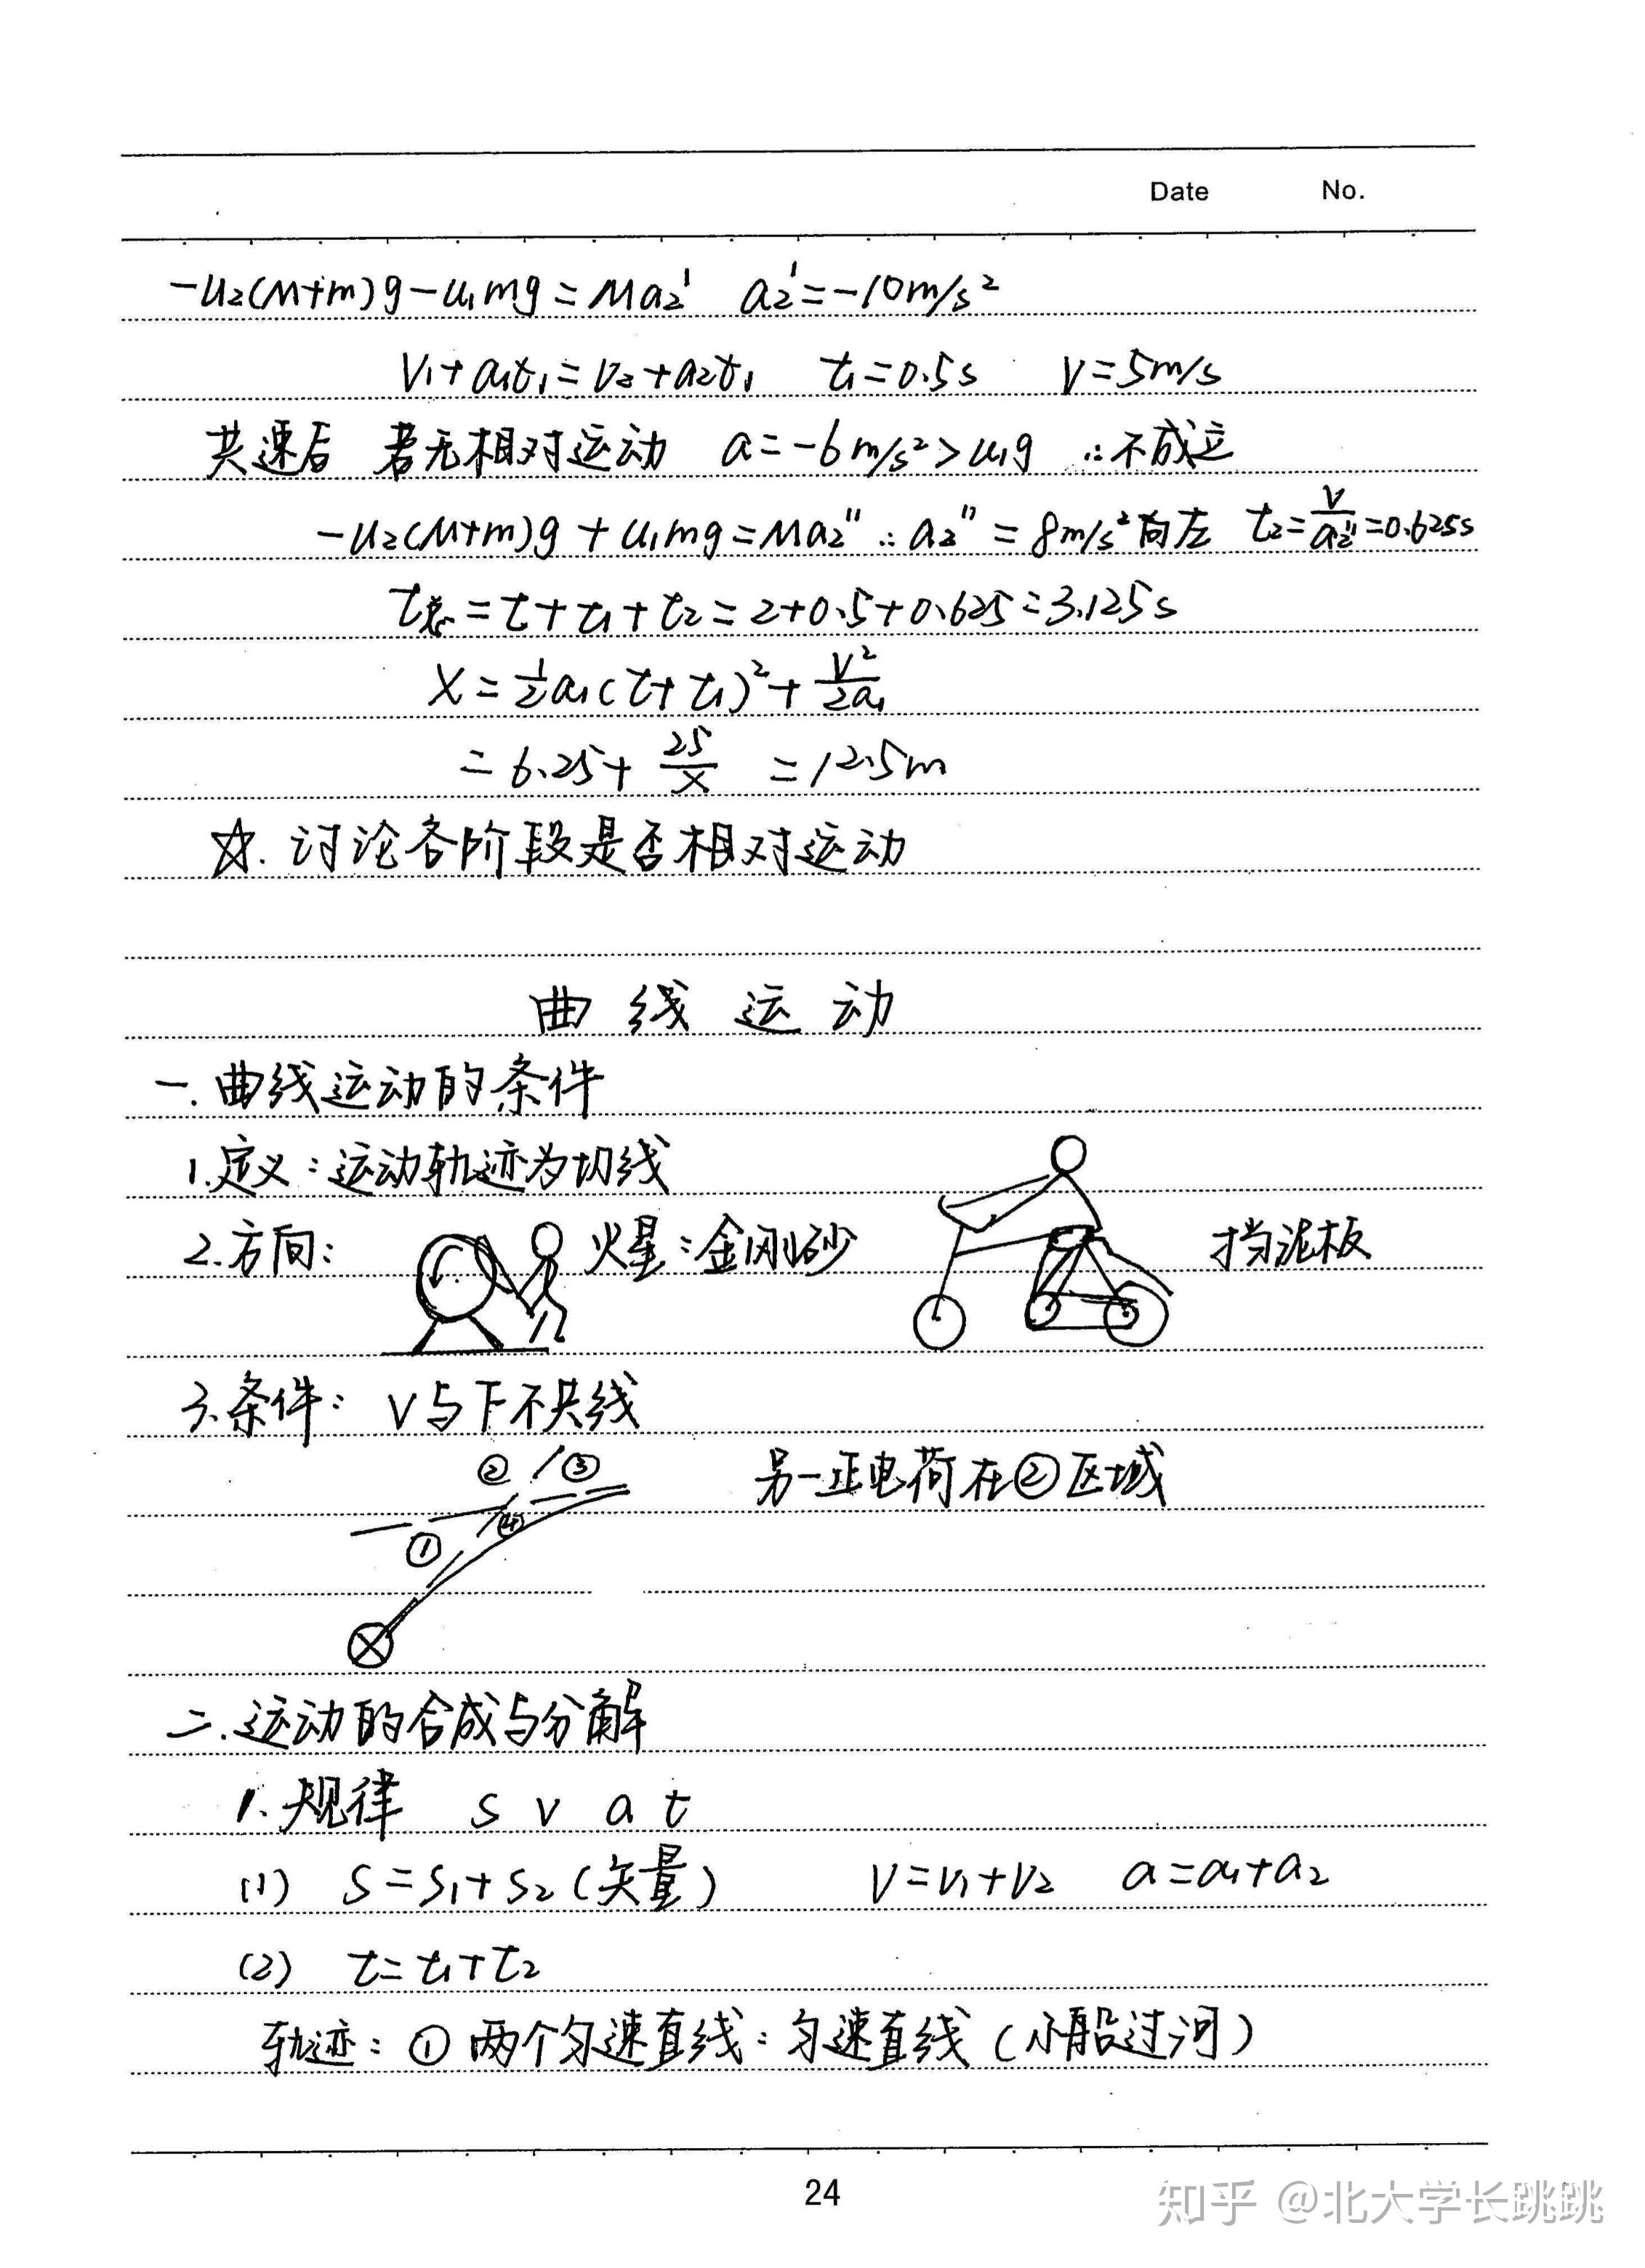 Date No.
-u₂(M+m)g-u₁mg=Ma₂' a₂'=-10m/s²
V₁+a₁t₁=V₂+a₂t₁ t₁=0.5s V=5m/s
共速后 若无相对运动 a=-6m/s²>u₁g ∴不成立
-u₂(M+m)g+u₁mg=Ma₂'' ∴a₂''=8m/s²向左 t₂=V/a₂''=0.625s
t总=t+t₁+t₂=2+0.5+0.625=3.125s
X=½a₁(t+t₁)²+V²/2a₁
=6.25+25/X =12.5m
☆.讨论各阶段是否相对运动
曲线运动
一.曲线运动的条件
1.定义:运动轨迹为切线
2.方向: 火星:金刚砂 挡泥板
3.条件: V与F不共线
② ③ 另一正电荷在②区域
① ④
二.运动的合成与分解
1.规律 s v a t
(1) S=S₁+S₂(矢量) V=V₁+V₂ a=a₁+a₂
(2) t=t₁+t₂
轨迹:①两个匀速直线:匀速直线(小船过河)
24
知乎 @北大学长跳跳